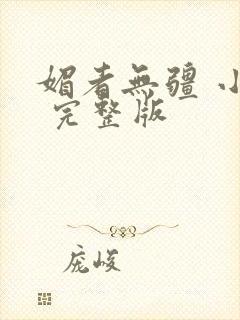 媚者無疆 小
完整版
庞峻